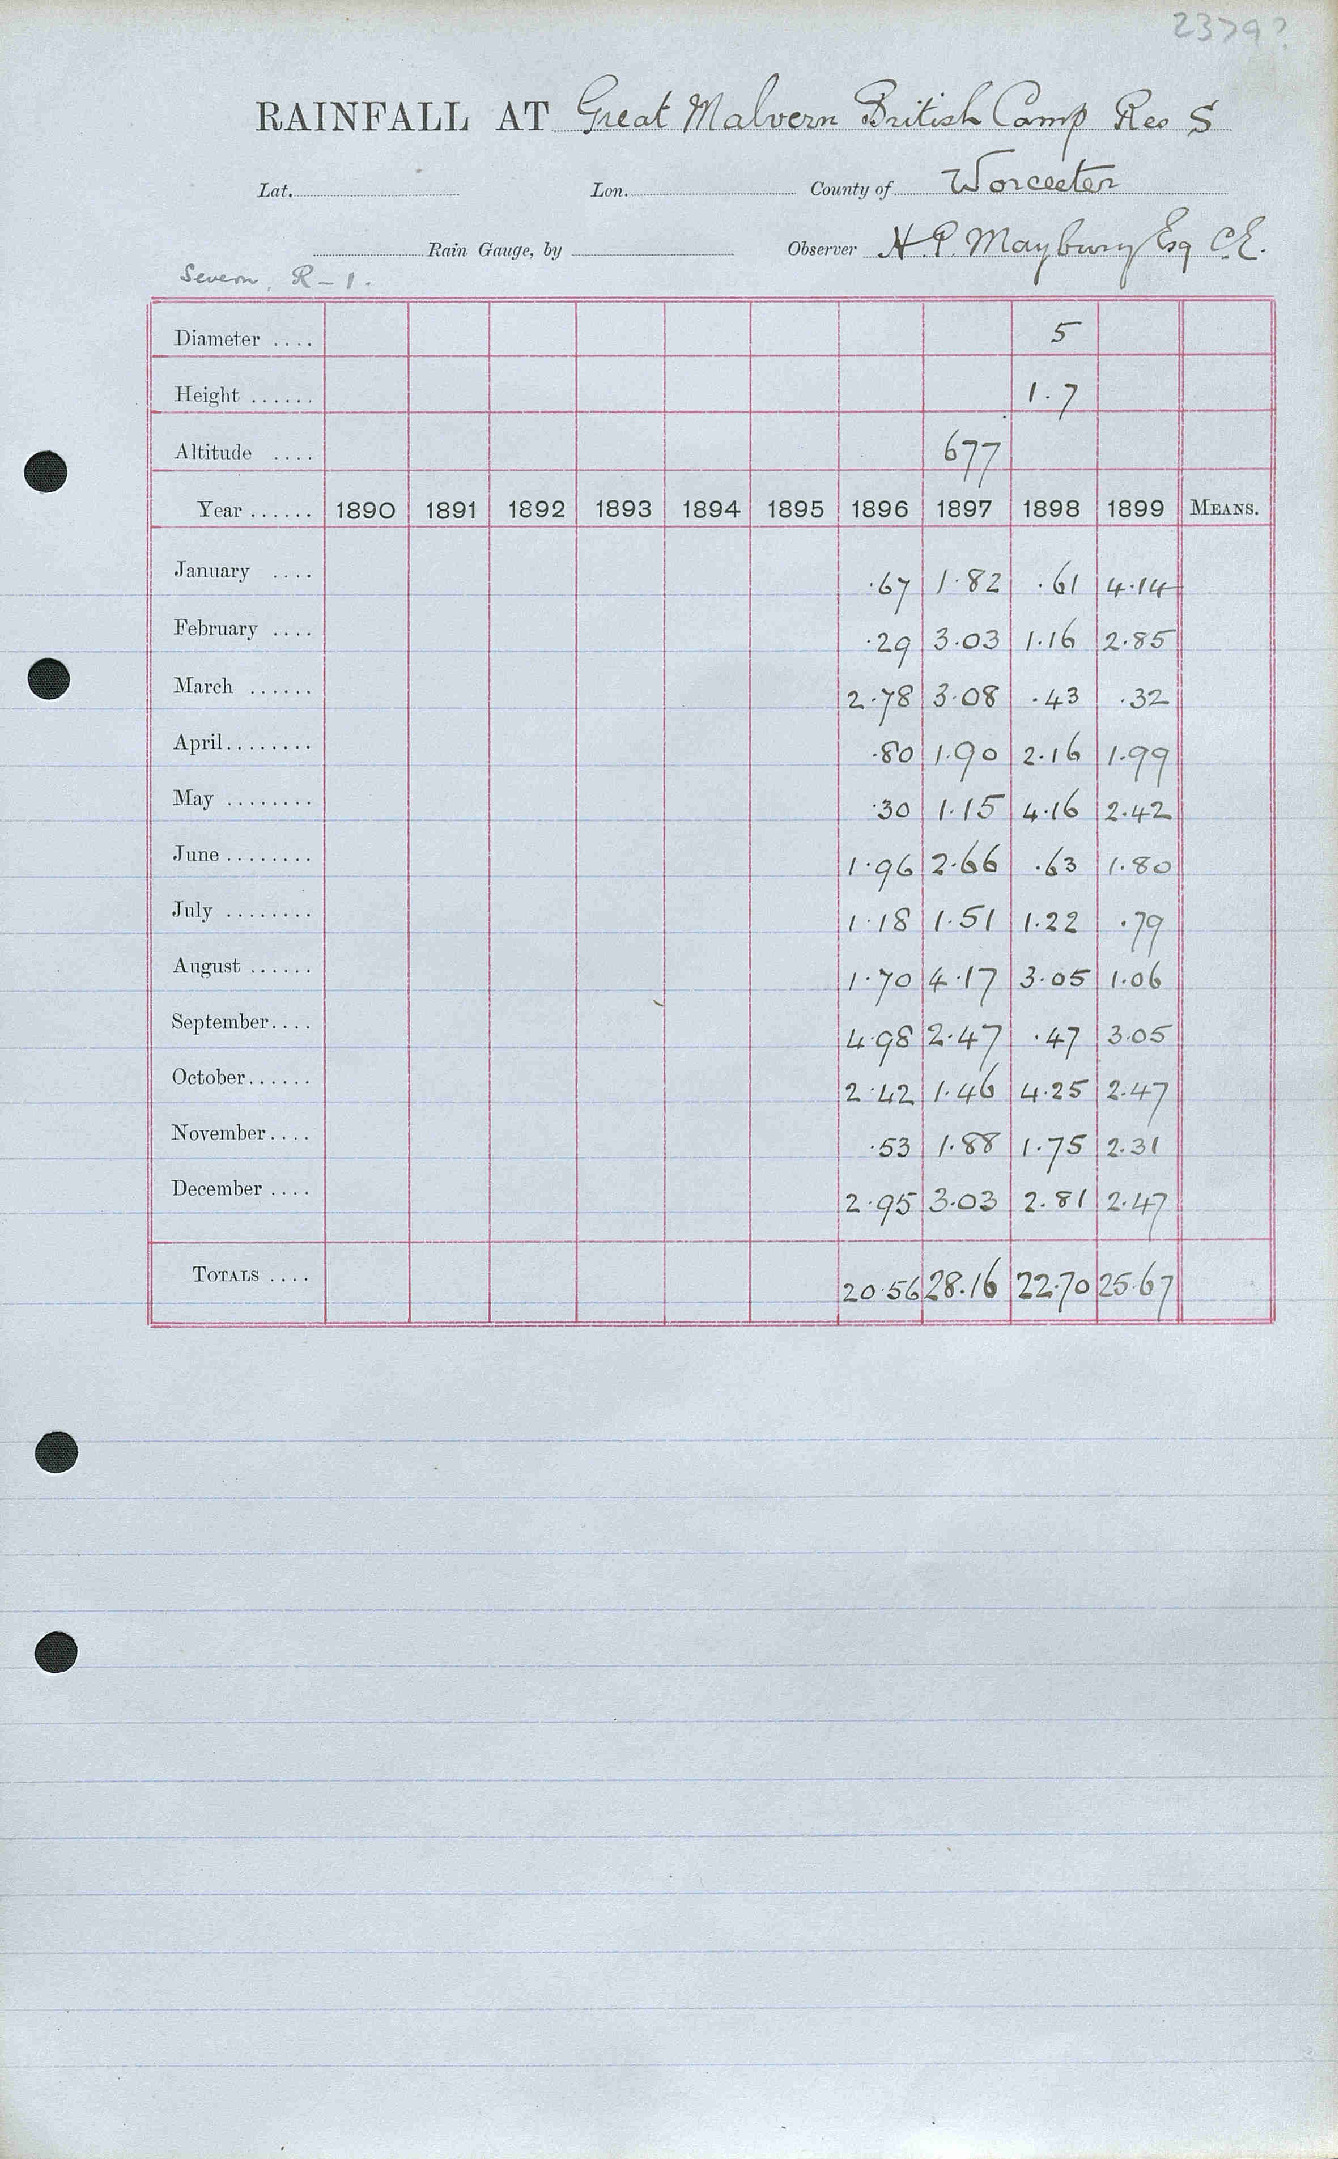 2379?
RAINFALL AT Great Malvern British Camp Res S
Lat. Lon. County of Worcester
Rain Gauge, by Observer H.P. Maybury Esq C.E.
Severn. R – 1.
Diameter .... 5
Height ...... 1.7
Altitude .... 677
Year ...... 1890 1891 1892 1893 1894 1895 1896 1897 1898 1899 MEANS.
January .... .67 1.82 .61 4.14
February .... .29 3.03 1.16 2.85
March ...... 2.78 3.08 .43 .32
April........ .80 1.90 2.16 1.99
May ........ .30 1.15 4.16 2.42
June ........ 1.96 2.66 .63 1.80
July ........ 1.18 1.51 1.22 .79
August ...... 1.70 4.17 3.05 1.06
September.... 4.98 2.47 .47 3.05
October...... 2.42 1.46 4.25 2.47
November.... .53 1.88 1.75 2.31
December .... 2.95 3.03 2.81 2.47
TOTALS .... 20.56 28.16 22.70 25.67